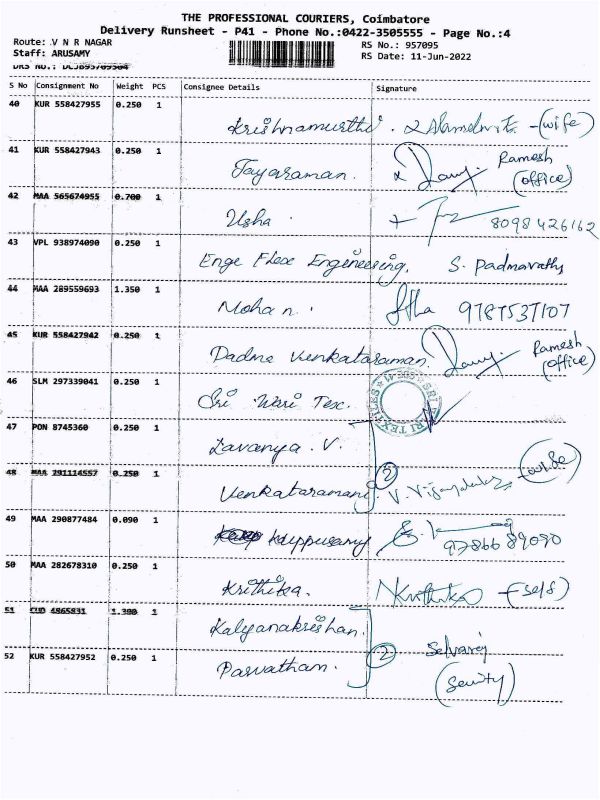 THE PROFESSIONAL COURIERS, Coimbatore
Delivery Runsheet - P41 - Phone No.:0422-3505555 - Page No.:4
Route: V N R NAGAR RS No.: 957095
Staff: ARUSAMY RS Date: 11-Jun-2022
S No Consignment No Weight PCS Consignee Details Signature
40 KUR 558427955 0.250 1
Krishnamurthi. -(wife)
41 KUR 558427943 0.250 1
Jayaraman. Ramesh
(office)
42 MAA 565674955 0.700 1
Usha. 8098426162
43 VPL 938974090 0.250 1
Enge Flexe Engineering. S. Padmavathy
44 MAA 289559693 1.350 1
Mohan. 9787537107
45 KUR 558427942 0.250 1
Padma Venkataraman. Ramesh
(office)
46 SLM 297339041 0.250 1
Sri Wari Tex.
47 PON 8745360 0.250 1
Lavanya. V.
48 MAA 291114557 0.250 1
Venkataramani. 2 V. Vijayalakshmi
49 MAA 290877484 0.090 1
Kuppusamy 9786689090
50 MAA 282678310 0.250 1
Krithika. Krithika -(self)
51 CUD 4865831 1.300 1
Kalyanakrishan.
52 KUR 558427952 0.250 1
Parvatham. 2 Selvaraj